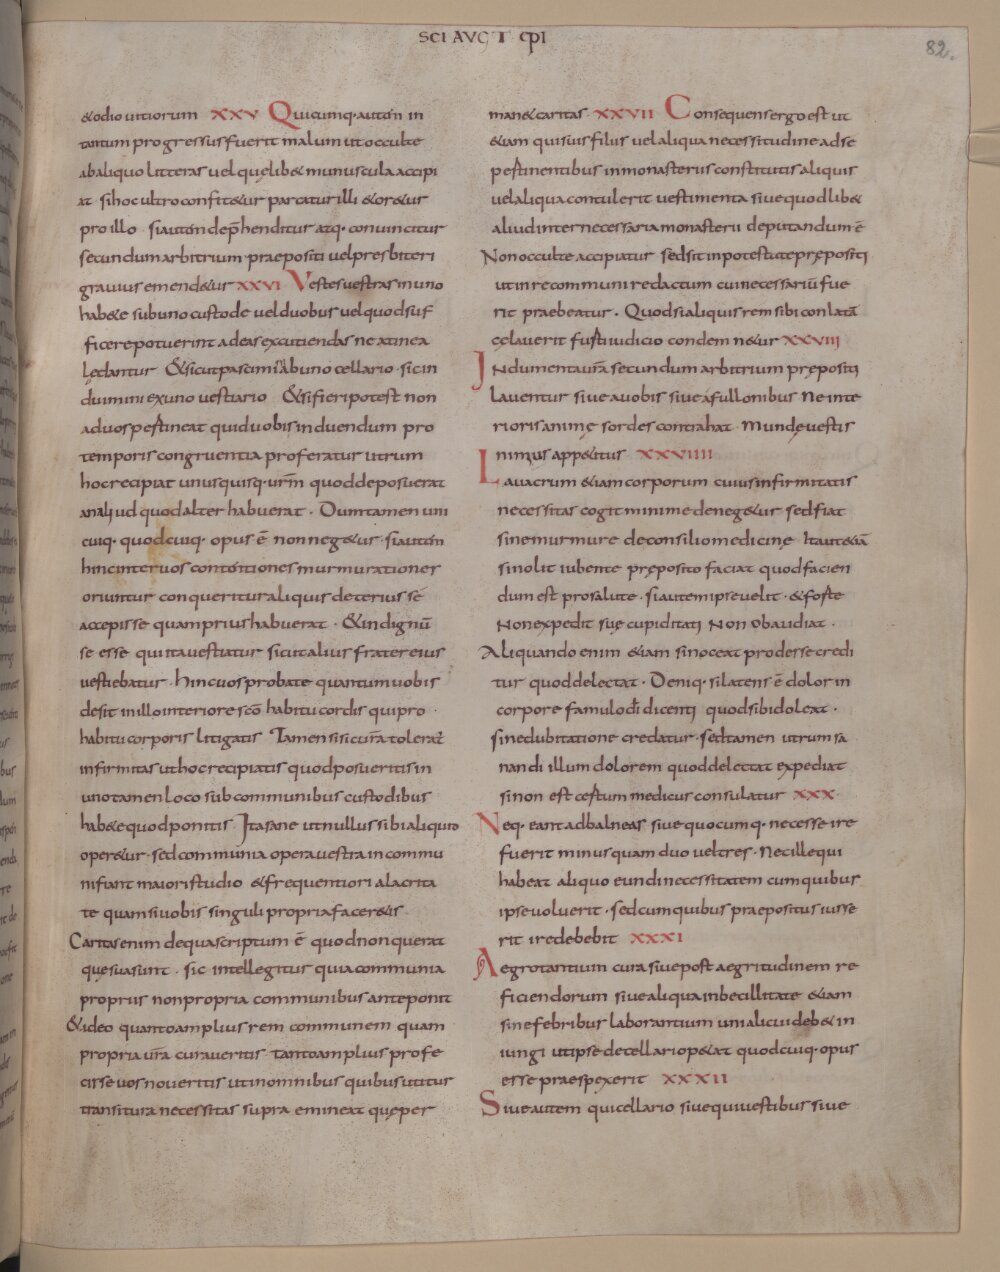 SCI AUGT EPI
82.
& odio uitiorum XXV Quicumq· autē in
tantum progressus fuerit malum ut occulte
ab aliquo litteras uel quęlib& munuscula accipi
at· si hoc ultro confit&ur parcatur illi & or&ur
pro illo· si autē dep̄henditur atq· conuincitur
secundum arbitrium praepositi uel presbiteri
grauius emend&ur XXVI Vestes uestras in uno
hab&e sub uno custode uel duobus uel quod suf
ficere potuerint ad eas excutiendas ne a tinea
lędantur &sicut pascimini ab uno cellario· sic in
duimini ex uno uestiario &si fieri potest non
ad uos pertineat quid uobis induendum pro
temporis congruentia proferatur utrum
hoc recipiat unusquisq· ur̄m quod deposuerat
an aliud quod alter habuerat· Dum tamen uni
cuiq· quod cuiq· opus ē non neg&ur· si autē
hinc inter uos contētiones murmurationes
oriuntur conqueritur aliquis deterius sē
accepisse quam prius habuerat· &indignū
se esse qui ita uestiatur sicut alius frater eius
uestiebatur· hinc uos probate quantum uobis
desit in illo interiore scō habitu cordis qui pro
habitu corporis litigatis Tamen si si cur̄a tolerat̄
infirmitas ut hoc recipiatis quod posueritis in
uno tamen loco sub communibus custodibus
hab&e quod ponitis Ita sane ut nullus sibi aliquid
oper&ur· sed communia opera uestra in commu
ni fiant maiori studio & frequentiori alacrita
te quam si uobis singuli propria facer&is·
Caritas enim de qua scriptum ē quod non querat
quę sua sunt· sic intellegitur quia communia
propriis non propria communibus anteponit
&ideo quanto amplius rem communem quam
propria ur̄a curaueritis tanto amplius profe
cisse uos noueritis ut in omnibus quibus utitur
transitura necessitas supra emineat quę per
man& caritas· XXVII Consequens ergo est ut
&iam qui suis filiis uel aliqua necessitudine ad se
pertinentibus in monasteriis constitutis aliquis
uel aliqua contulerit uestimenta siue quodlib&
aliud inter necessaria monasterii deputandum ē
Non occulte accipiatur sed sit in potestate prępositi
ut in re communi redactum cui necessariū fue
rit praebeatur· Quod si aliquis rem sibi conlatā
cęlauerit furti iudicio condemn&ur XXVIII
Indumenta ur̄a secundum arbitrium prępositi
lauentur siue a uobis siue a fullonibus Ne inte
rioris animę sordes contrahat· Mundę uestis
nimius app&itus XXVIIII
Lauacrum &iam corporum cuius infirmitatis
necessitas cogit minime deneg&ur sed fiat
sine murmure de consilio medicinę Ita ut &iā
si nolit iubente pręposito faciat quod facien
dum est pro salute· si autem ipse uelit· & forte
Non expedit suę cupiditati Non obaudiat·
Aliquando enim &iam si noceat prodesse credi
tur quod delectat· Deniq· si latens ē dolor in
corpore famulo dī dicenti quod sibi doleat·
sine dubitatione credatur· sed tamen utrum sa
nandi illum dolorem quod delectat expediat
si non est certum medicus consulatur XXX·
Neq· eant ad balneas siue quocumq· necesse ire
fuerit minus quam duo uel tres· Nec ille qui
habeat aliquo eundi necessitatem cum quibus
ipse uoluerit· sed cum quibus praepositus iusse
rit ire debebit XXXI
Aegrotantium cura siue post aegritudinem re
ficiendorum siue aliqua inbecillitate &iam
sine febribus laborantium uni alicui deb&in
iungi ut ipse de cellario p&at quod cuiq· opus
esse praespexerit XXXII
Siue autem qui cellario siue qui uestibus siue